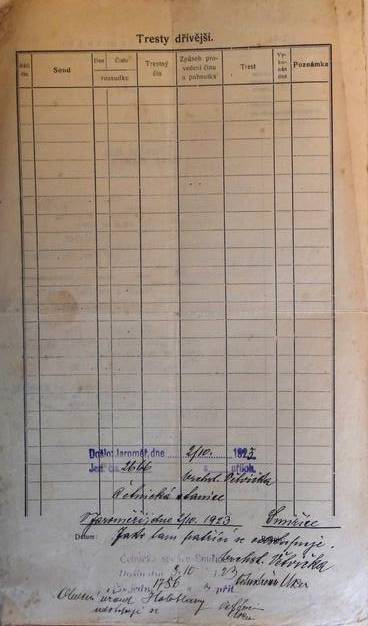 Tresty dřívější.
Běž. čís. Soud Den Číslo Trestný čin Způsob provedení činu a pohnutka Trest Vykonán dne Poznámka
rozsudku
Došlo: Jaroměř, dne 2/10. 1923
Jedn. čís. 2666 s příloh.
vrchst. Větvička
Četnická stanice
V Jaroměři, dne 2/10. 1923 Smiřice
Datum: Jako tam patřící se odstupuje.
vrchst. Větvička
Četnická stanice Smiřice
Došlo dne 3. 10. 1923
Č. jedn. 1786 příl.
Obecní úřad Holohlavy
odstupuje se